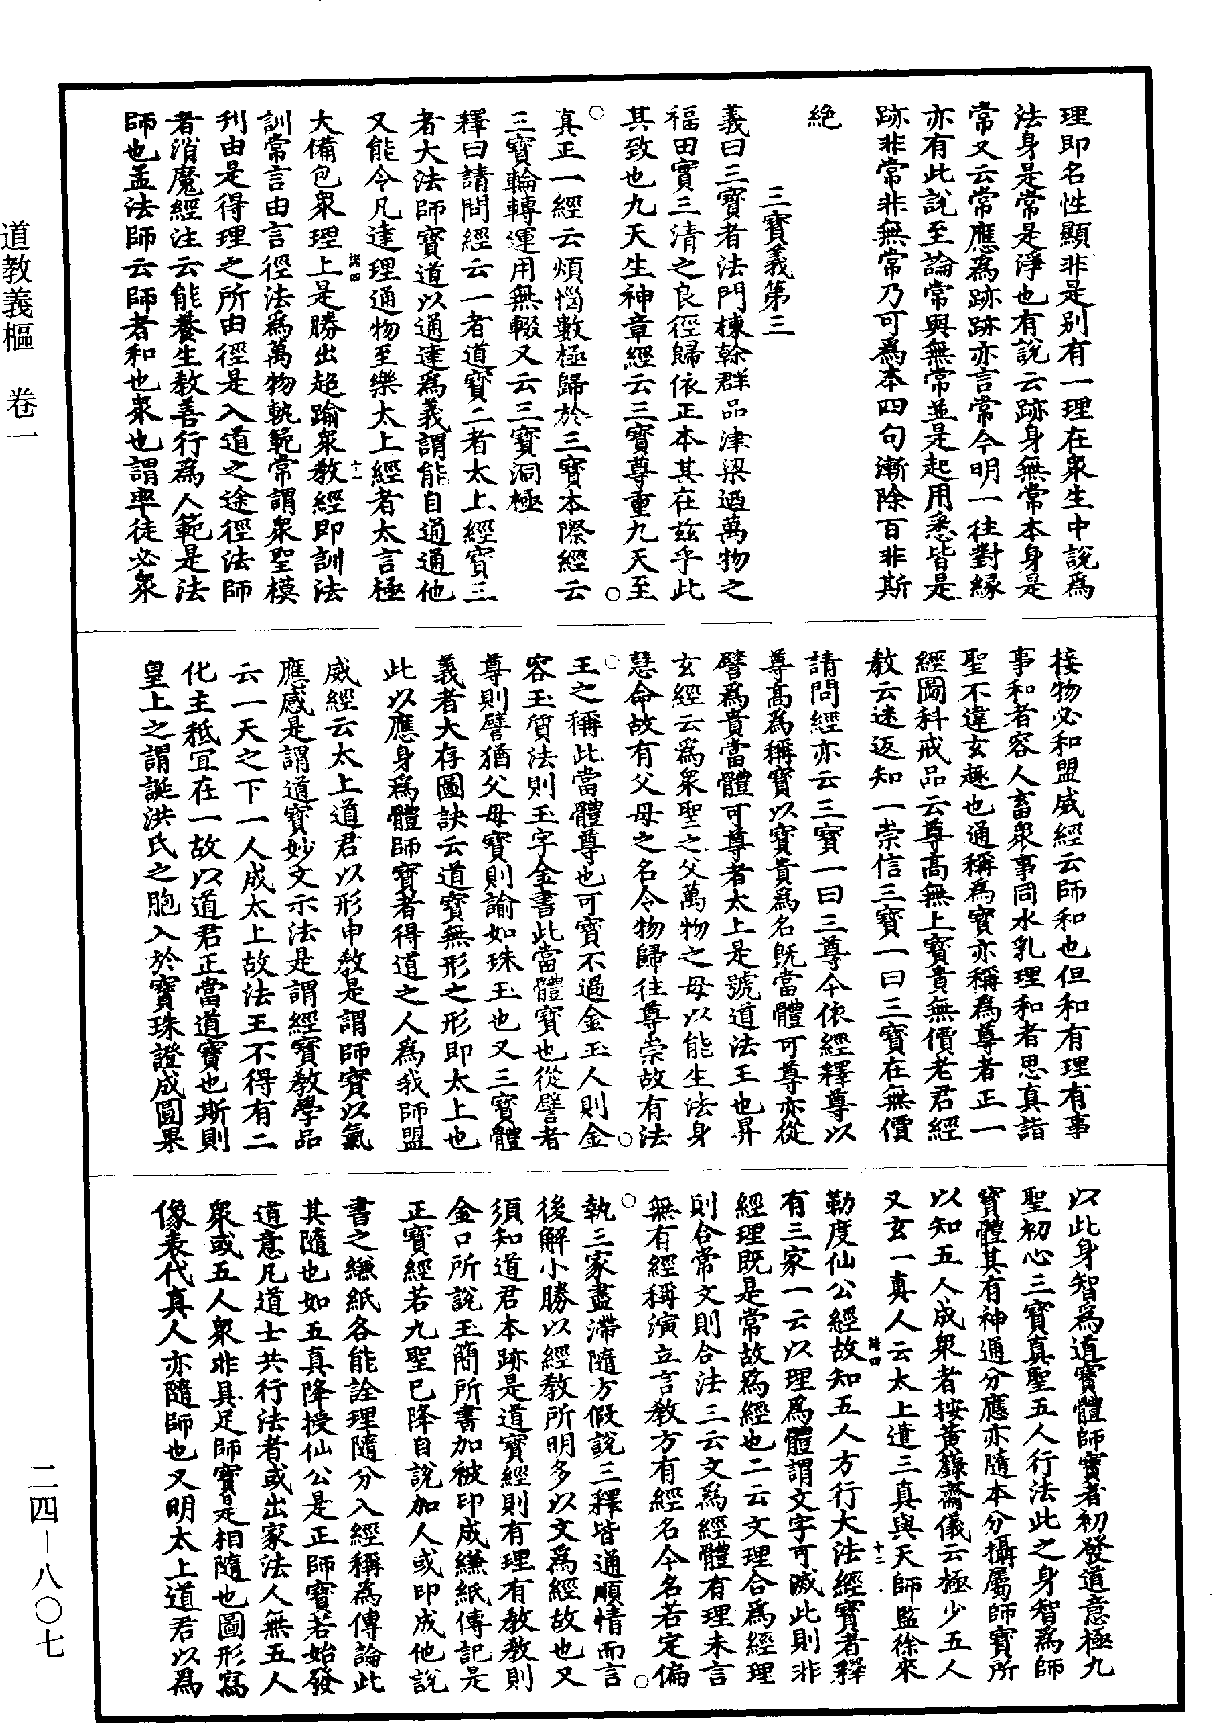 理即名性顯非是别有一理在衆生中說爲
法身是常是淨也有說云跡身無常本身是
常又云常應爲跡跡亦言常今明一往對緣
亦有此說至論常與無常並是起用悉皆是
跡非常非無常乃可爲本四句漸除百非斯
絶
三寶義第三
義曰三寶者法門棟榦群品津梁迺萬物之
福田實三清之良徑歸依正本其在兹乎此
其致也九天生神章經云三寶尊重九天至
真正一經云煩惱數極歸於三寶本際經云
三寶輪轉運用無輟又云三寶洞極
釋曰請問經云一者道寶二者太上經寶三
者大法師寶道以通達爲義謂能自通通他
又能令凡達理通物至樂太上經者太言極
大備包衆理上是勝出超踰衆教經即訓法
訓常言由言徑法爲萬物軌範常謂衆聖模
刋由是得理之所由徑是入道之途徑法師
者消魔經注云能養生教善行爲人範是法
師也孟法師云師者和也衆也謂率徒必衆
接物必和盟威經云師和也但和有理有事
事和者容人畜衆事同水乳理和者思真詣
聖不違玄趣也通稱爲寶亦稱爲尊者正一
經圖科戒品云尊高無上寶貴無價老君經
教云迷返知一崇信三寶一曰三寶在無價
請問經亦云三寶一曰三尊今依經釋尊以
尊高爲稱寶以寶貴爲名既當體可尊亦從
譬爲貴當體可尊者太上是號道法王也昇
玄經云爲衆聖之父萬物之母以能生法身
慧命故有父母之名令物歸往尊崇故有法
王之稱此當體尊也可寶不過金玉人則金
容玉質法則玉字金書此當體寶也從譬者
尊則譬猶父母寶則諭如珠玉也又三寶體
義者大存圖訣云道寶無形之形即太上也
此以應身爲體師寶者得道之人爲我師盟
威經云太上道君以形申教是謂師寶以氣
應感是謂道寶妙文示法是謂經寶教學品
云一天之下一人成太上故法王不得有二
化主秖宜在一故以道君正當道寶也斯則
皇上之謂誕洪氏之胞入於寶珠證成圓果
以此身智爲道寶體師寶者初發道意極九
聖初心三寶真聖五人行法此之身智爲師
寶體其有神通分應亦隨本分攝屬師寶所
以知五人成衆者按黃籙齋儀云極少五人
又玄一真人云太上遣三真與天師監徐來
勒度仙公經故知五人方行大法經寶者釋
有三家一云以理爲體謂文字可滅此則非
經理既是常故爲經也二云文理合爲經理
則合常文則合法三云文爲經體有理未言
無有經稱演立言教方有經名今名若定偏
執三家盡滯隨方假說三釋皆通順情而言
後解小勝以經教所明多以文爲經故也又
須知道君本跡是道寶經則有理有教教則
金口所說玉簡所書加被印成縑紙傳記是
正寶經若九聖已降自說加人或印成他說
書之縑紙各能詮理隨分入經稱爲傳論此
其隨也如五真降授仙公是正師寶若始發
道意凡道士共行法者或出家法人無五人
衆或五人衆非具足師寶是相隨也圖形寫
像表代真人亦隨師也又明太上道君以爲
道教義樞　卷一
二四—八〇七